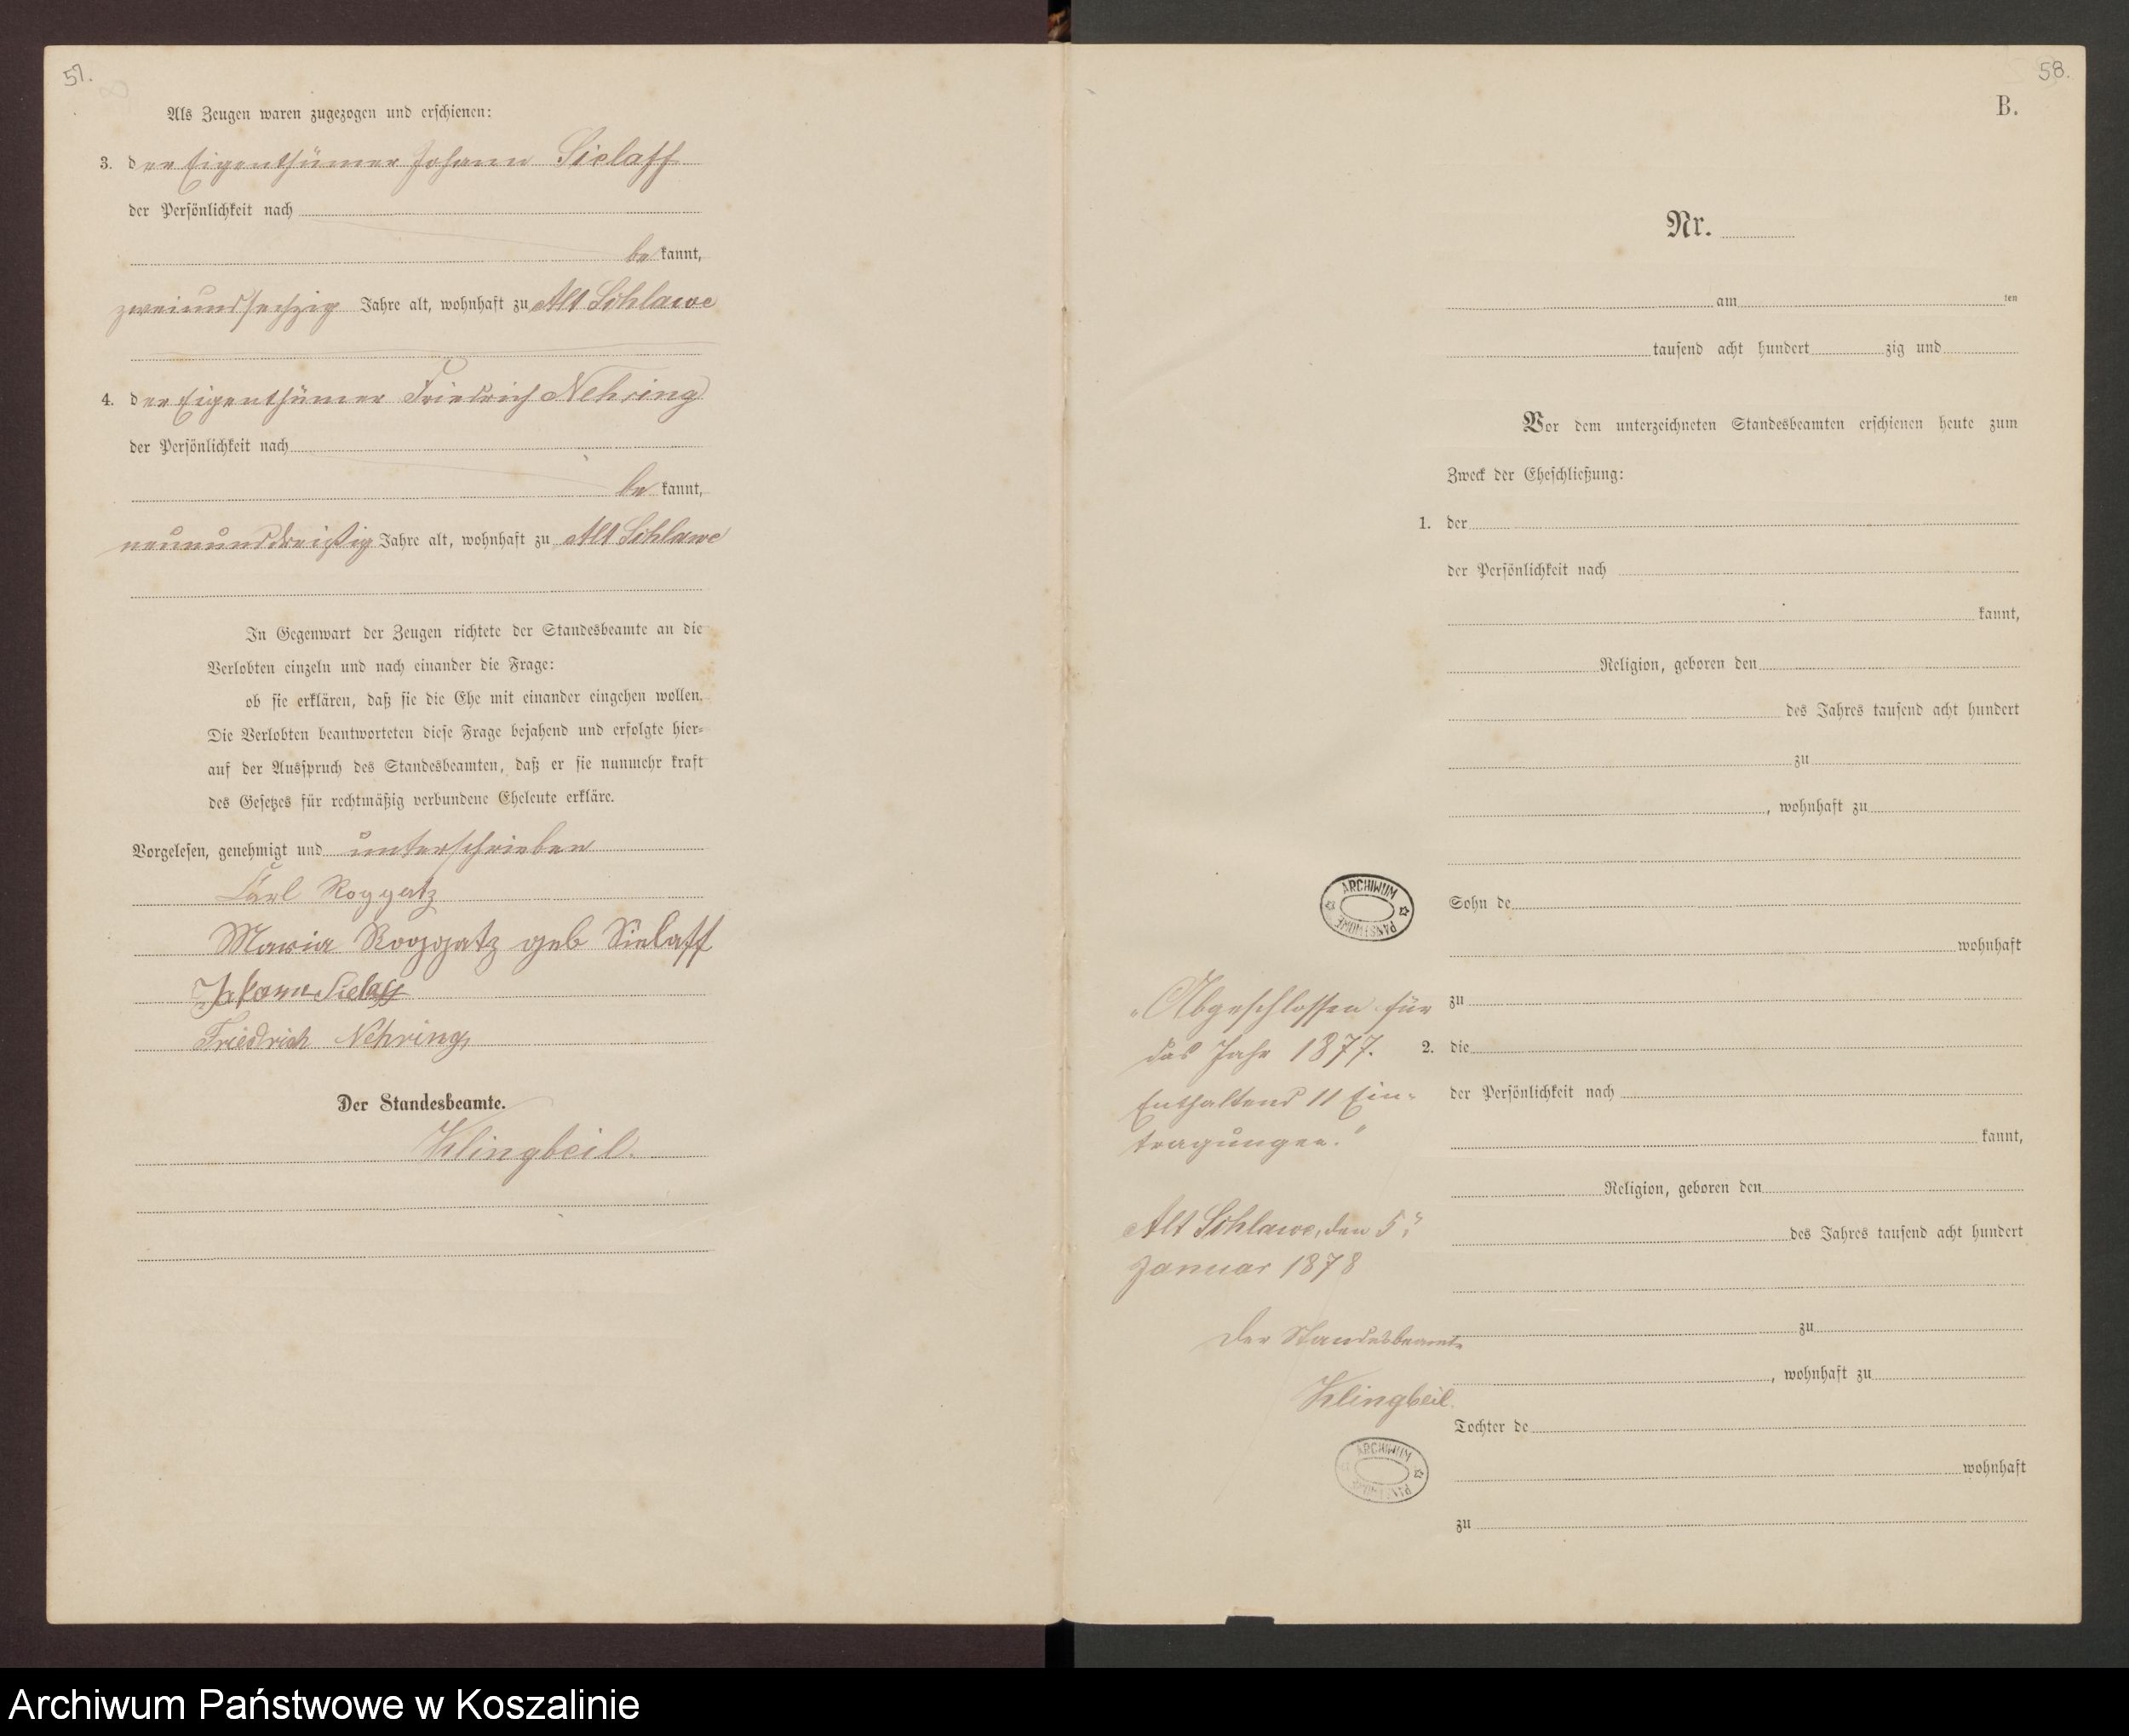 57.
Als Zeugen waren zugezogen und erschienen:
3. der Eigenthümer Johann Sielaff
der Persönlichkeit nach
bekannt,
zweiundsechzig Jahre alt, wohnhaft zu Alt Schlawe
4. der Eigenthümer Friedrich Nehring
der Persönlichkeit nach
bekannt,
neununddreißig Jahre alt, wohnhaft zu Alt Schlawe
In Gegenwart der Zeugen richtete der Standesbeamte an die
Verlobten einzeln und nach einander die Frage:
ob sie erklären, daß sie die Ehe mit einander eingehen wollen.
Die Verlobten beantworteten diese Frage bejahend und erfolgte hier-
auf der Ausspruch des Standesbeamten, daß er sie nunmehr kraft
des Gesetzes für rechtmäßig verbundene Eheleute erkläre.
Vorgelesen, genehmigt und unterschrieben
Carl Roggatz
Maria Roggatz geb Sielaff
Johann Sielaff
Friedrich Nehring
Der Standesbeamte.
Klingbeil.
58.
B.
Nr.
am ten
tausend acht hundert zig und
Vor dem unterzeichneten Standesbeamten erschienen heute zum
Zweck der Eheschließung:
1. der
der Persönlichkeit nach
kannt,
Religion, geboren den
des Jahres tausend acht hundert
zu
, wohnhaft zu
Sohn de
wohnhaft
zu
2. die
der Persönlichkeit nach
kannt,
Religion, geboren den
des Jahres tausend acht hundert
zu
, wohnhaft zu
Tochter de
wohnhaft
zu
ARCHIWUM PAŃSTWOWE
„Abgeschlossen für
das Jahr 1877.
Enthaltend 11 Ein-
tragungen."
Alt Schlawe, den 5ten
Januar 1878
Der Standesbeamte
Klingbeil.
ARCHIWUM PAŃSTWOWE
Archiwum Państwowe w Koszalinie